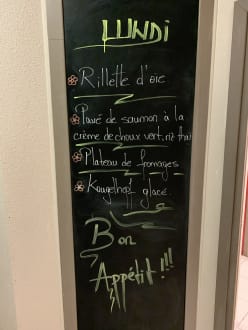 LUNDI
Rillette d'oie
Pavé de saumon à la
crème de choux vert, riz thaï
Plateau de fromages
Kougelhopf glacé.
Bon
Appétit !!!